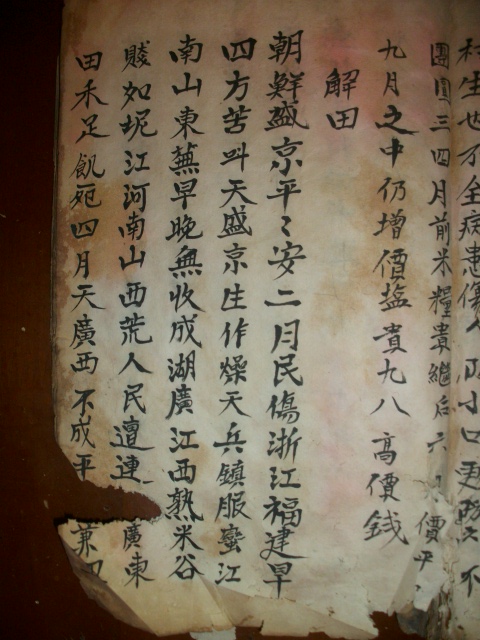 村生也不全病患傷人 小口更 不
團圓三四月前米糧貴繼后六 價平
九月之中仍增價塩貴九八高價錢
解田
朝鮮盛京平〻安二月民傷浙江福建旱
四方苦叫天盛京生作燥天兵鎮服蛮江
南山東蕪旱晚無收成湖廣江西熟米谷
賤如坭江河南山西荒人民遭連 廣東
田禾足飢死四月天廣西不成平 兼